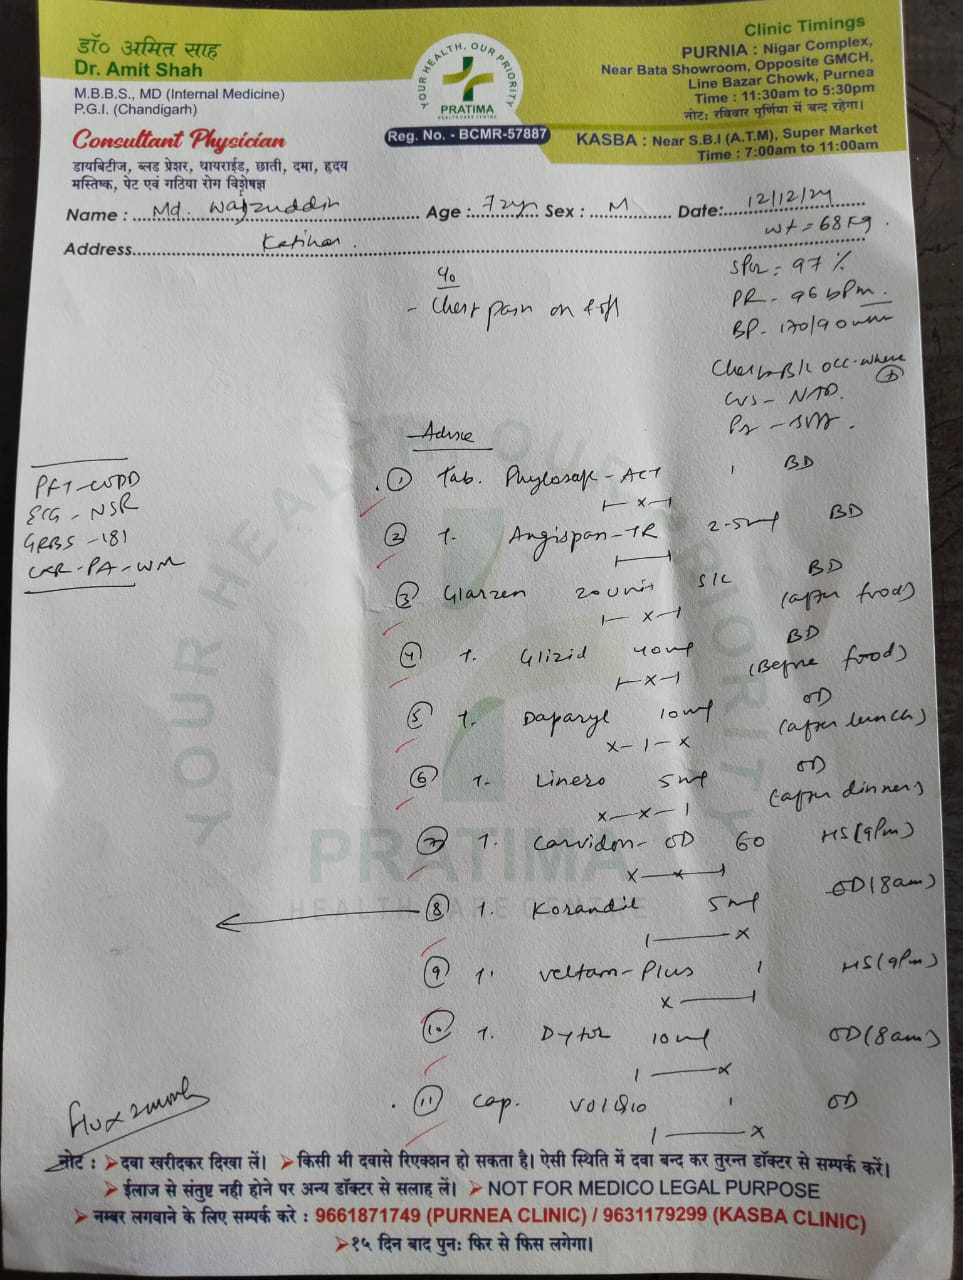 डॉ० अमित साह
Dr. Amit Shah
M.B.B.S., MD (Internal Medicine)
P.G.I. (Chandigarh)
Consultant Physician
डायबिटीज, ब्लड प्रेशर, थायराईड, छाती, दमा, हृदय
मस्तिष्क, पेट एवं गठिया रोग विशेषज्ञ
YOUR HEALTH, OUR PRIORITY
PRATIMA
HEALTH CARE CENTRE
Reg. No. - BCMR-57887
Clinic Timings
PURNIA : Nigar Complex,
Near Bata Showroom, Opposite GMCH,
Line Bazar Chowk, Purnea
Time : 11:30am to 5:30pm
नोट: रविवार पूर्णिया में बन्द रहेगा।
KASBA : Near S.B.I (A.T.M), Super Market
Time : 7:00am to 11:00am
Name : Md. Age : Sex : M Date: 12/12/24
wt = 68 kg.
Address Katihar.
SPO2 = 97 %
PR - 96 bpm.
BP - 170/90
c/o
- Chest pain on & off
Chest - B/L occ.
CVS - NAD.
Advice
PFT - COPD
ECG - NSR
GRBS - 181
CXR - PA -
1 Tab. - ACT 1 BD
1-x-1
2 T. Angispan-TR 2.5mg BD
3 Glarzen 20 unit S/C BD
(after food)
1-x-1
4 T. Glizid 40mg BD
(Before food)
1-x-1
5 T. Daparyl 10mg OD
(after lunch)
x-1-x
6 T. 5mg OD
(after dinner)
x-x-1
7 T. Carvidon-OD 60 HS (9pm)
8 T. Korandil 5mg OD (8am)
9 T. Veltam-Plus 1 HS (9pm)
10 T. Dytor 10mg OD (8am)
11 Cap. 1 OD
YOUR HEALTH, OUR PRIORITY
PRATIMA
HEALTH CARE CENTRE
नोट : ➤दवा खरीदकर दिखा लें। ➤किसी भी दवासे रिएक्शन हो सकता है। ऐसी स्थिति में दवा बन्द कर तुरन्त डॉक्टर से सम्पर्क करें।
➤ईलाज से संतुष्ट नही होने पर अन्य डॉक्टर से सलाह लें। ➤ NOT FOR MEDICO LEGAL PURPOSE
➤नम्बर लगवाने के लिए सम्पर्क करे : 9661871749 (PURNEA CLINIC) / 9631179299 (KASBA CLINIC)
➤१५ दिन बाद पुनः फिर से फिस लगेगा।